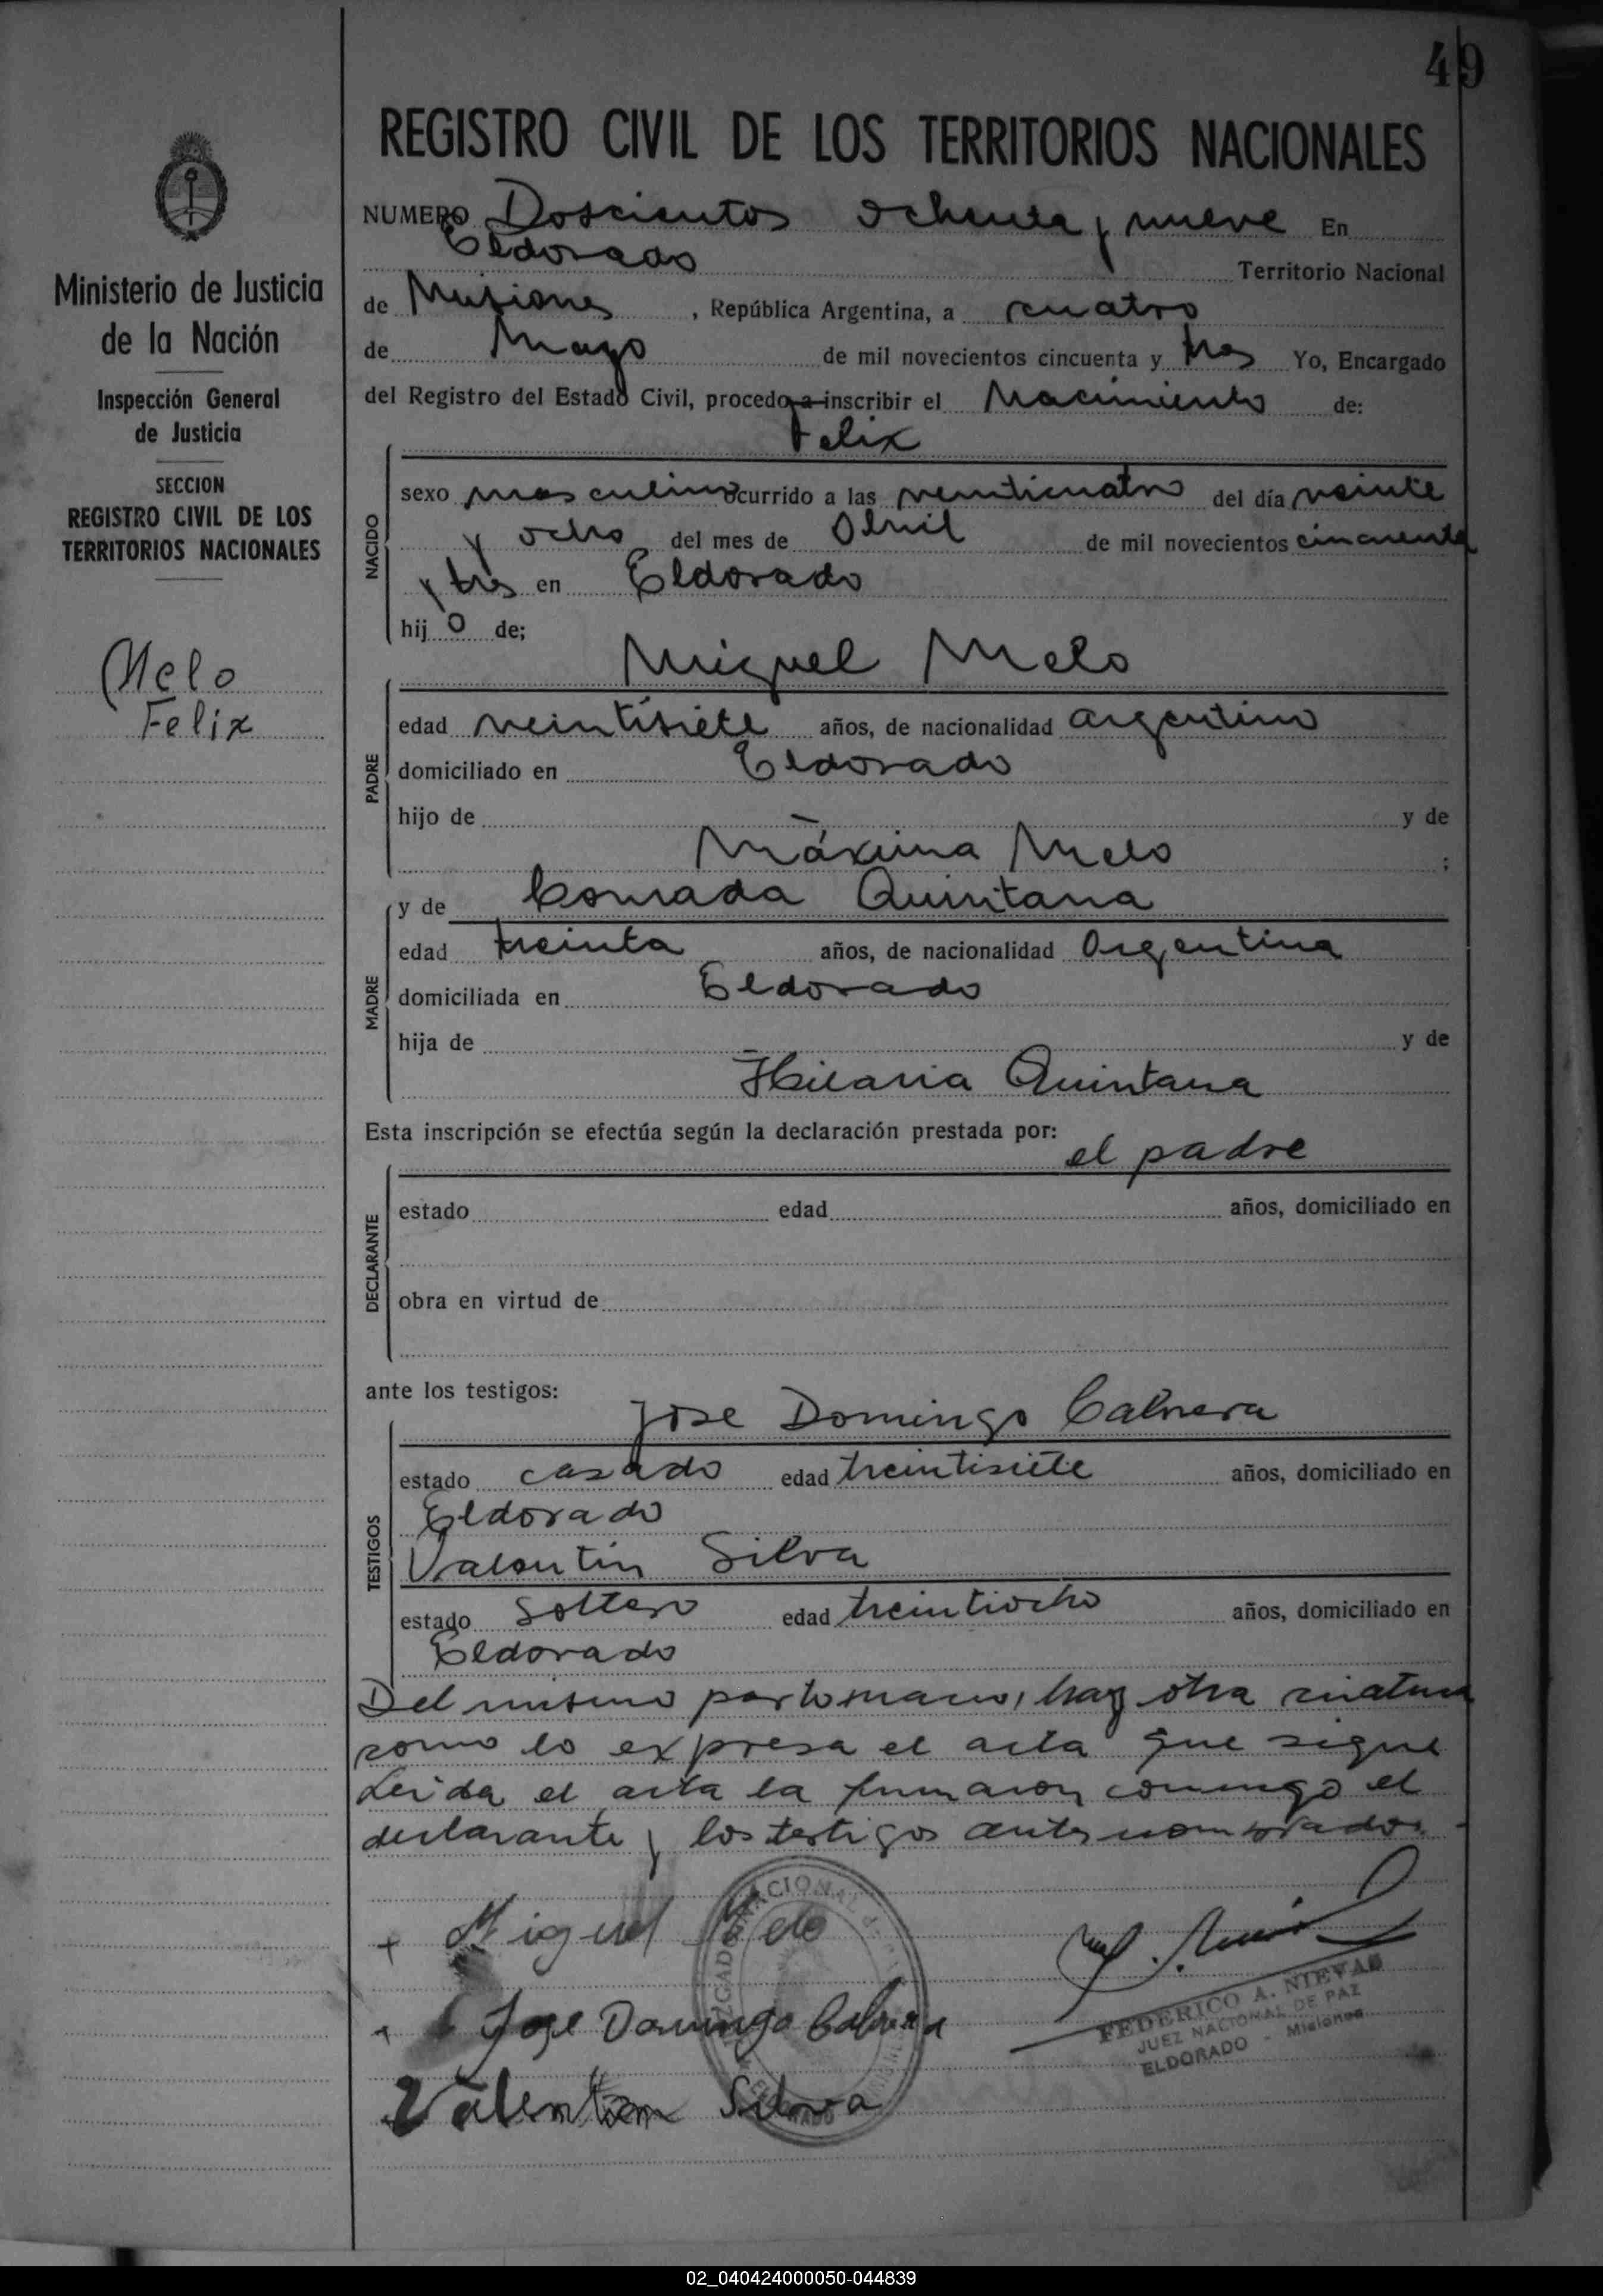 49
REGISTRO CIVIL DE LOS TERRITORIOS NACIONALES
Ministerio de Justicia
de la Nación
Inspección General
de Justicia
SECCION
REGISTRO CIVIL DE LOS
TERRITORIOS NACIONALES
Melo
Felix
NUMERO Doscientos ochenta y nueve En
Eldorado Territorio Nacional
de Misiones, República Argentina, a cuatro
de Mayo de mil novecientos cincuenta y tres Yo, Encargado
del Registro del Estado Civil, procedo a inscribir el Nacimiento de:
Felix
NACIDO
sexo masculino ocurrido a las veinticuatro del día veinte
y ocho del mes de Abril de mil novecientos cincuenta
y tres en Eldorado
hijo de;
Miguel Melo
PADRE
edad veintisiete años, de nacionalidad argentino
domiciliado en Eldorado
hijo de y de
Máxima Melo ;
y de Conrada Quintana
MADRE
edad treinta años, de nacionalidad Argentina
domiciliada en Eldorado
hija de y de
Hilaria Quintana
Esta inscripción se efectúa según la declaración prestada por:
el padre
DECLARANTE
estado edad años, domiciliado en
obra en virtud de
ante los testigos:
Jose Domingo Cabrera
TESTIGOS
estado casado edad treintisiete años, domiciliado en
Eldorado
Valentin Silva
estado soltero edad treintiocho años, domiciliado en
Eldorado
Del mismo parto hay otra criatura
como lo expresa el acta que sigue
Leida el acta la firmaron conmigo el
declarante y los testigos antes nombrados.
Miguel Melo
Jose Domingo Cabrera
Valentin Silva
FEDERICO A. NIEVAS
JUEZ NACIONAL DE PAZ
ELDORADO - Misiones
02_040424000050-044839